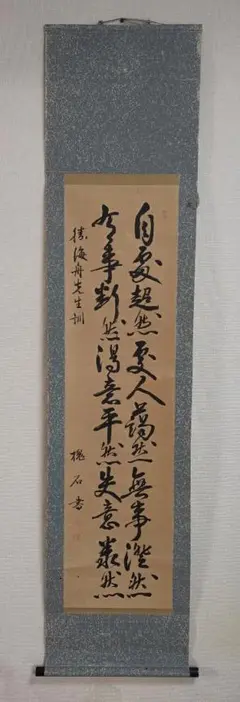 自處超然處人藹然無事澄然
有事斬然得意平然失意泰然
勝海舟先生訓
槐石書